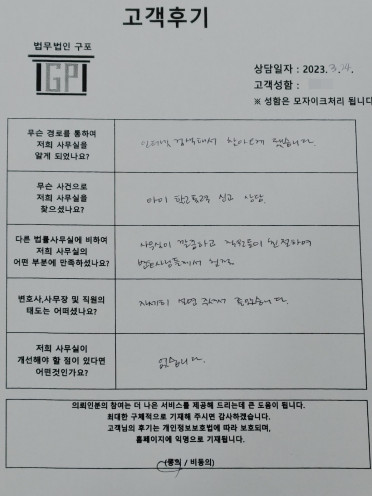 고객후기
법무법인 구포
GP
상담일자 : 2023. 3. 24.
고객성함 :
※ 성함은 모자이크처리 됩니다
무슨 경로를 통하여
저희 사무실을
알게 되었나요?
인터넷 검색해서 찾아오게 됐습니다.
무슨 사건으로
저희 사무실을
찾으셨나요?
아이 상담.
다른 법률사무실에 비하여
저희 사무실의
어떤 부분에 만족하셨나요?
사무실이 깔끔하고 직원들이 친절하여
변호사,사무장 및 직원의
태도는 어떠셨나요?
자세히 설명 주셔서 좋았습니다.
저희 사무실이
개선해야 할 점이 있다면
어떤것인가요?
없습니다.
의뢰인분의 참여는 더 나은 서비스를 제공해 드리는데 큰 도움이 됩니다.
최대한 구체적으로 기재해 주시면 감사하겠습니다.
고객님의 후기는 개인정보보호법에 따라 보호되며,
홈페이지에 익명으로 기재됩니다.
(동의 / 비동의)